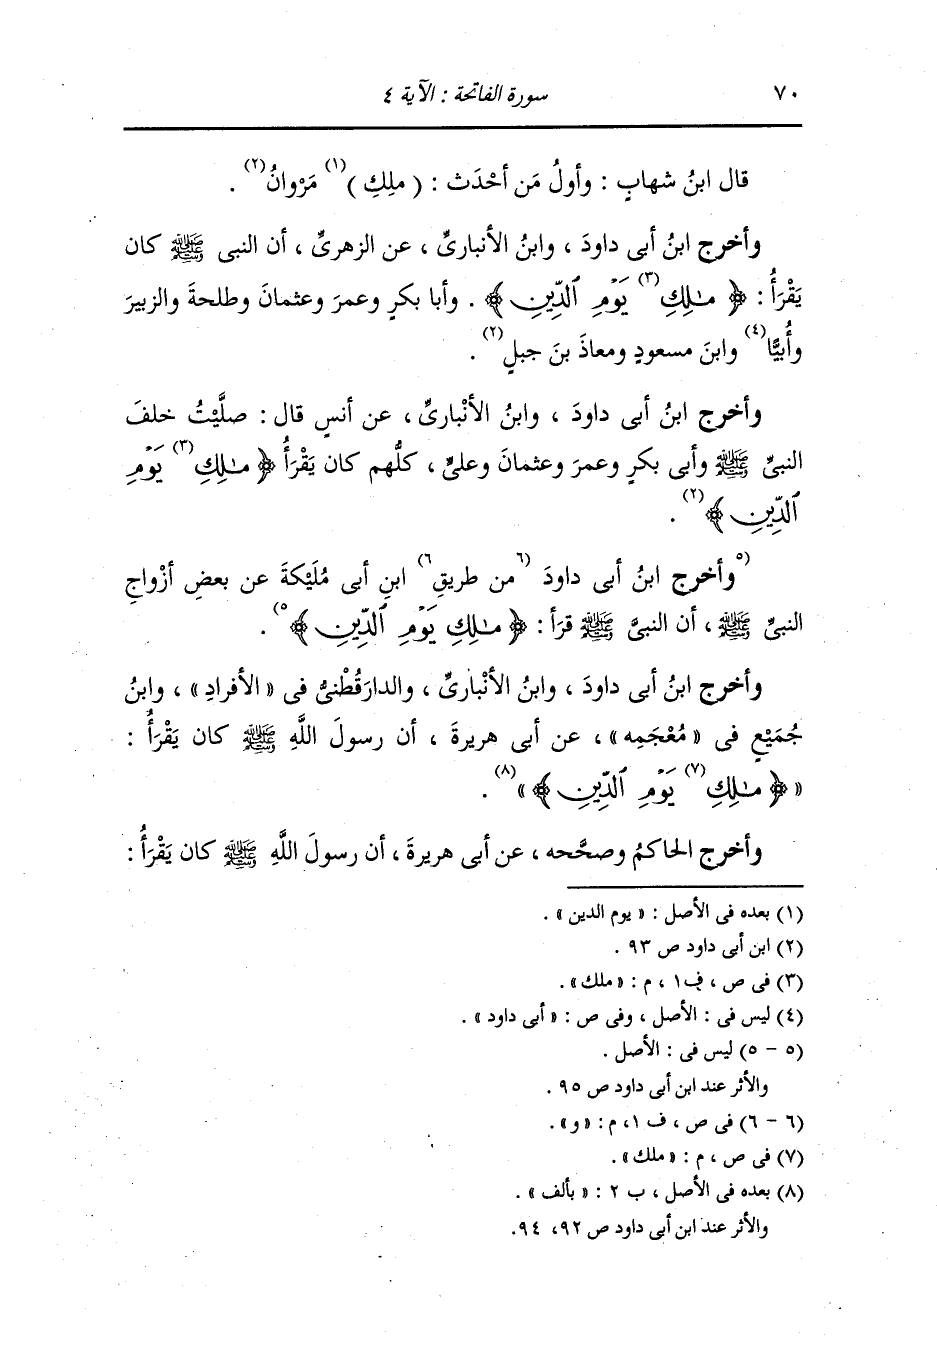 ٧٠ سورة الفاتحة : الآية ٤
قال ابنُ شهابٍ : وأولُ مَن أحْدَث : ( ملِكِ )(١) مَرْوانُ(٢) .
وأخرج ابنُ أبى داودَ ، وابنُ الأنبارىِّ ، عن الزهرىِّ ، أن النبى ﷺ كان
يَقْرَأُ : ﴿ مَٰلِكِ(٣) يَوْمِ ٱلدِّينِ ﴾ . وأبا بكرٍ وعمرَ وعثمانَ وطلحةَ والزبيرَ
وأُبيًّا(٤) وابنَ مسعودٍ ومعاذَ بنَ جبلٍ(٢) .
وأخرج ابنُ أبى داودَ ، وابنُ الأنْبارىِّ ، عن أنسٍ قال : صلَّيْتُ خلفَ
النبىِّ ﷺ وأبى بكرٍ وعمرَ وعثمانَ وعلىٍّ ، كلُّهم كان يَقْرَأُ ﴿ مَٰلِكِ(٣) يَوْمِ
ٱلدِّينِ ﴾(٢) .
(٥وأخرج ابنُ أبى داودَ (٦من طريقِ٦) ابنِ أبى مُلَيْكةَ عن بعضِ أزْواجِ
النبىِّ ﷺ ، أن النبىَّ ﷺ قرَأ : ﴿ مَٰلِكِ يَوْمِ ٱلدِّينِ ﴾٥) .
وأخرج ابنُ أبى داودَ ، وابنُ الأنْبارىِّ ، والدارَقُطْنىُّ فى « الأفرادِ » ، وابنُ
جُمَيْعٍ فى « مُعْجَمِه » ، عن أبى هريرةَ ، أن رسولَ اللَّهِ ﷺ كان يَقْرَأُ :
« ﴿ مَٰلِكِ(٧) يَوْمِ ٱلدِّينِ ﴾ »(٨) .
وأخرج الحاكمُ وصحَّحه ، عن أبى هريرةَ ، أن رسولَ اللَّهِ ﷺ كان يَقْرَأُ :
(١) بعده فى الأصل : « يوم الدين » .
(٢) ابن أبى داود ص ٩٣ .
(٣) فى ص ، ف١ ، م : « ملك » .
(٤) ليس فى : الأصل ، وفى ص : « أبى داود » .
(٥ - ٥) ليس فى : الأصل .
والأثر عند ابن أبى داود ص ٩٥ .
(٦ - ٦) فى ص ، ف ١، م : « و» .
(٧) فى ص ، م : « ملك » .
(٨) بعده فى الأصل ، ب ٢ : « بألف » .
والأثر عند ابن أبى داود ص ٩٢، ٩٤.